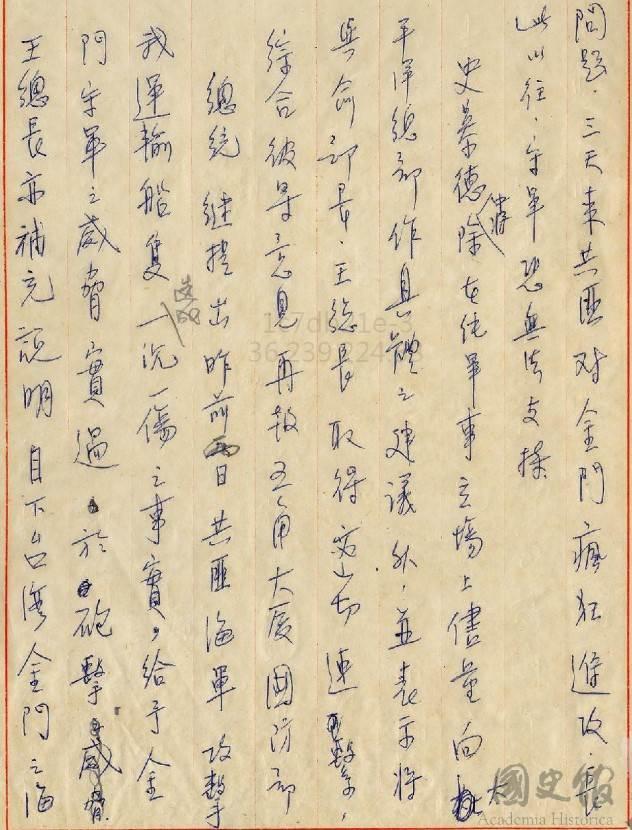 問題。三天來共匪对金門瘋狂進攻,長
此以往,守軍恐無法支撐。
史慕德除将在純軍事立場上儘量向太
平洋總部作具體之建議外,並表示将
與俞部長、王總長取得密切連繫,
綜合彼等意見再報五角大廈國防部
總統継提出昨前兩日共匪海軍攻擊
我運輸船隻造成一沉一傷之事實,給予金
門守軍之威脅實過於砲擊威脅
王總長亦補充説明目下台湾金門之海
國史館
Academia Historica